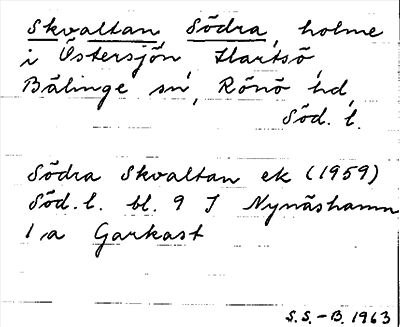 Skvaltan Södra, holme
i Östersjön, Hartsö,
Bälinge sn, Rönö hd,
Söd. l.
Södra Skvaltan ek (1959)
Söd. l. bl. 9 J Nynäshamn
1 a Garkast
S.S.-B. 1963